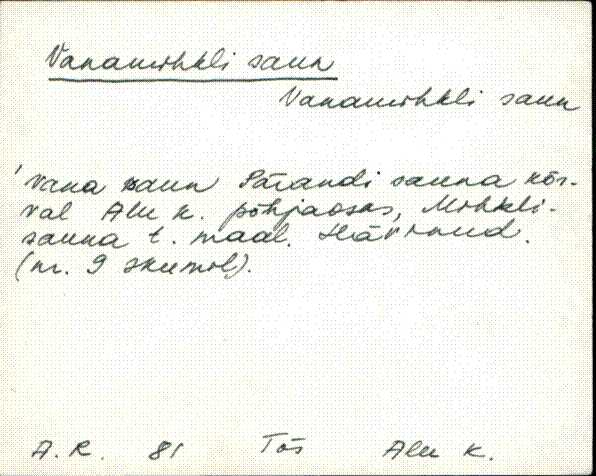 Vanamihkli saun
Vanamihkli saun
'vana saun Särandi sauna kõr-
val Alu k. põhjaosas, Mihkli-
sauna t. maal. Hävinud.
(nr. 9 skeemil).
A.R. 81 Tõs Alu k.